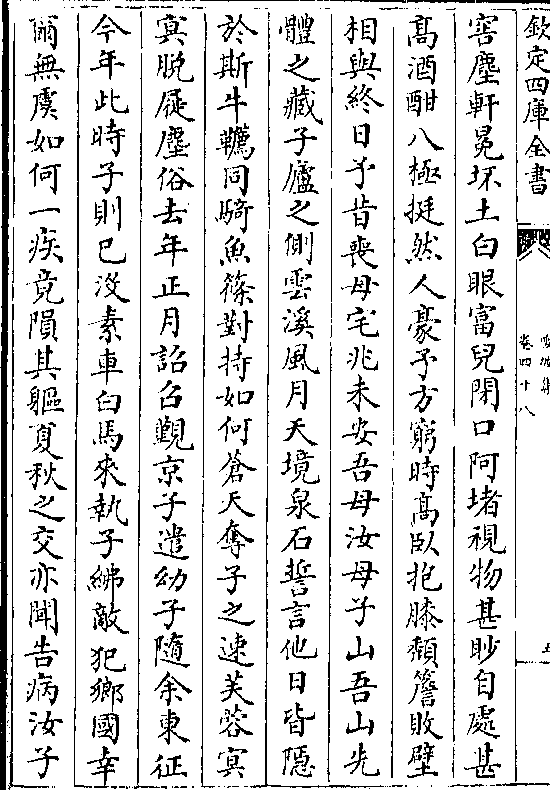 欽定四庫全書
卷四十八
窖塵軒冕坏土白眼富兒閉口阿堵視物甚眇自處甚
髙酒酣八極挺然人豪予方窮時髙臥抱膝頽簷敗壁
相與終日予昔喪母宅兆未安吾母汝母子山吾山先
體之藏子廬之側雲溪風月天境泉石誓言他日皆隱
於斯牛韉同騎魚篠對持如何蒼天奪子之速芙蓉㝠
㝠脫屣塵俗去年正月詔召覲京子遣幼子隨余東征
今年此時子則已沒素車白馬來執子紼敵犯鄉國幸
爾無虞如何一疾竟隕其軀夏秋之交亦聞告病汝子